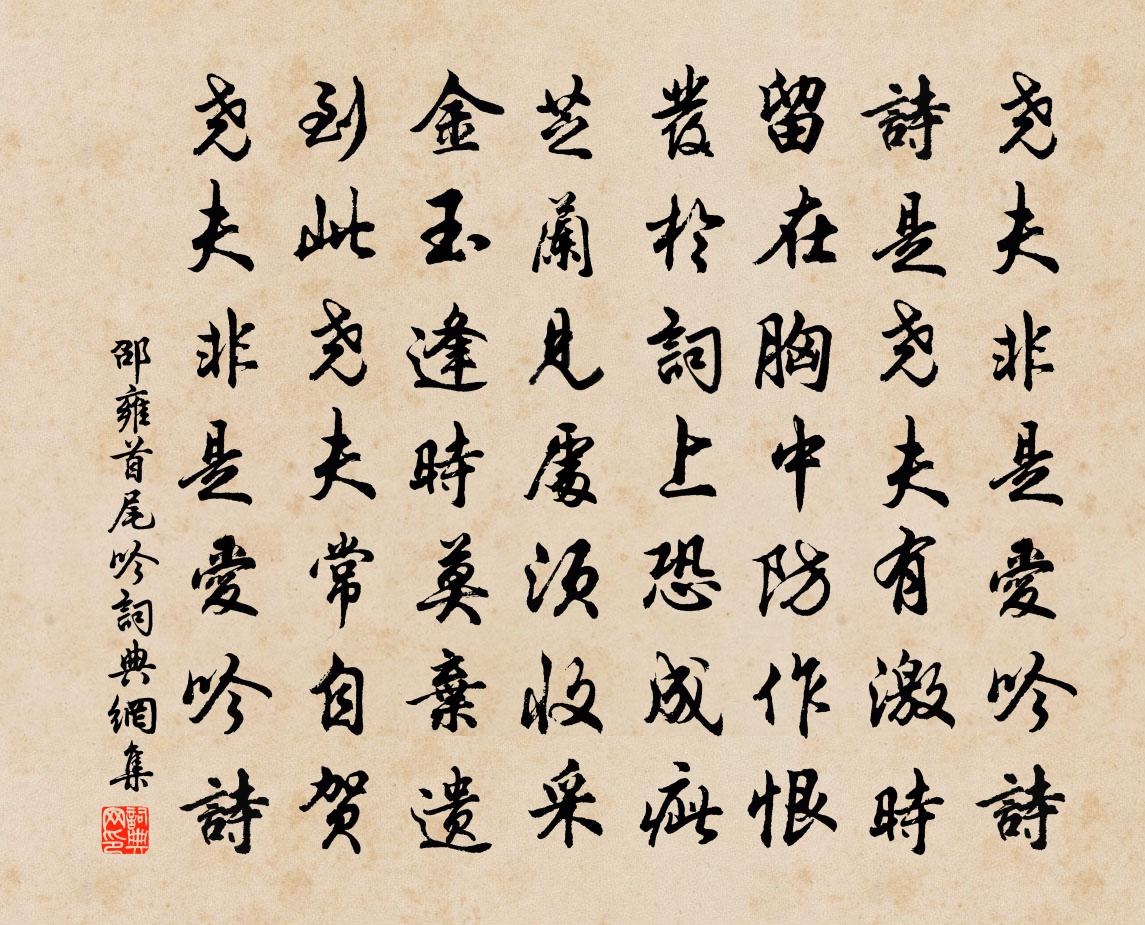 堯夫非是愛吟詩
詩是堯夫有激時
留在胸中防作恨
發於詞上恐成疵
芝蘭見處須收采
金玉逢時莫棄遺
到此堯夫常自賀
堯夫非是愛吟詩
邵雍首尾吟詞典網集
詞典網印